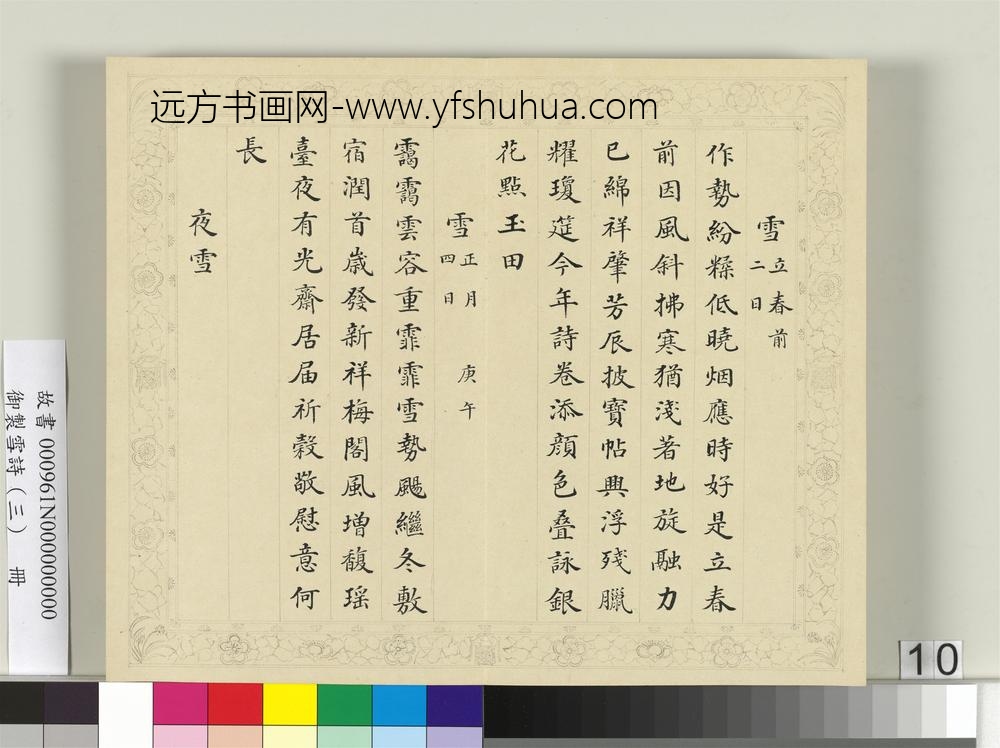 远方书画网-www.yfshuhua.com
雪立春前二日
作勢紛糅低曉烟應時好是立春
前因風斜拂寒猶淺著地旋融力
已綿祥肇芳辰披寶帖興浮殘臘
耀瓊筵今年詩卷添顏色叠詠銀
花點玉田
雪正月四日 庚午
靄靄雲容重霏霏雪勢颺繼冬敷
宿潤首歲發新祥梅閣風增馥瑶
臺夜有光齋居届祈穀敬慰意何
長
夜雪
故書 000961N000000000
御製雪詩(三) 冊
10